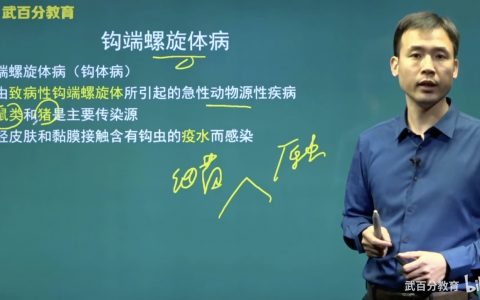 武百分教育
钩端螺旋体病
端螺旋体病（钩体病）
由致病性钩端螺旋体所引起的急性动物源性疾病
鼠类和猪是主要传染源
经皮肤和黏膜接触含有钩虫的疫水而感染
细菌
原虫
武百分教育
bi